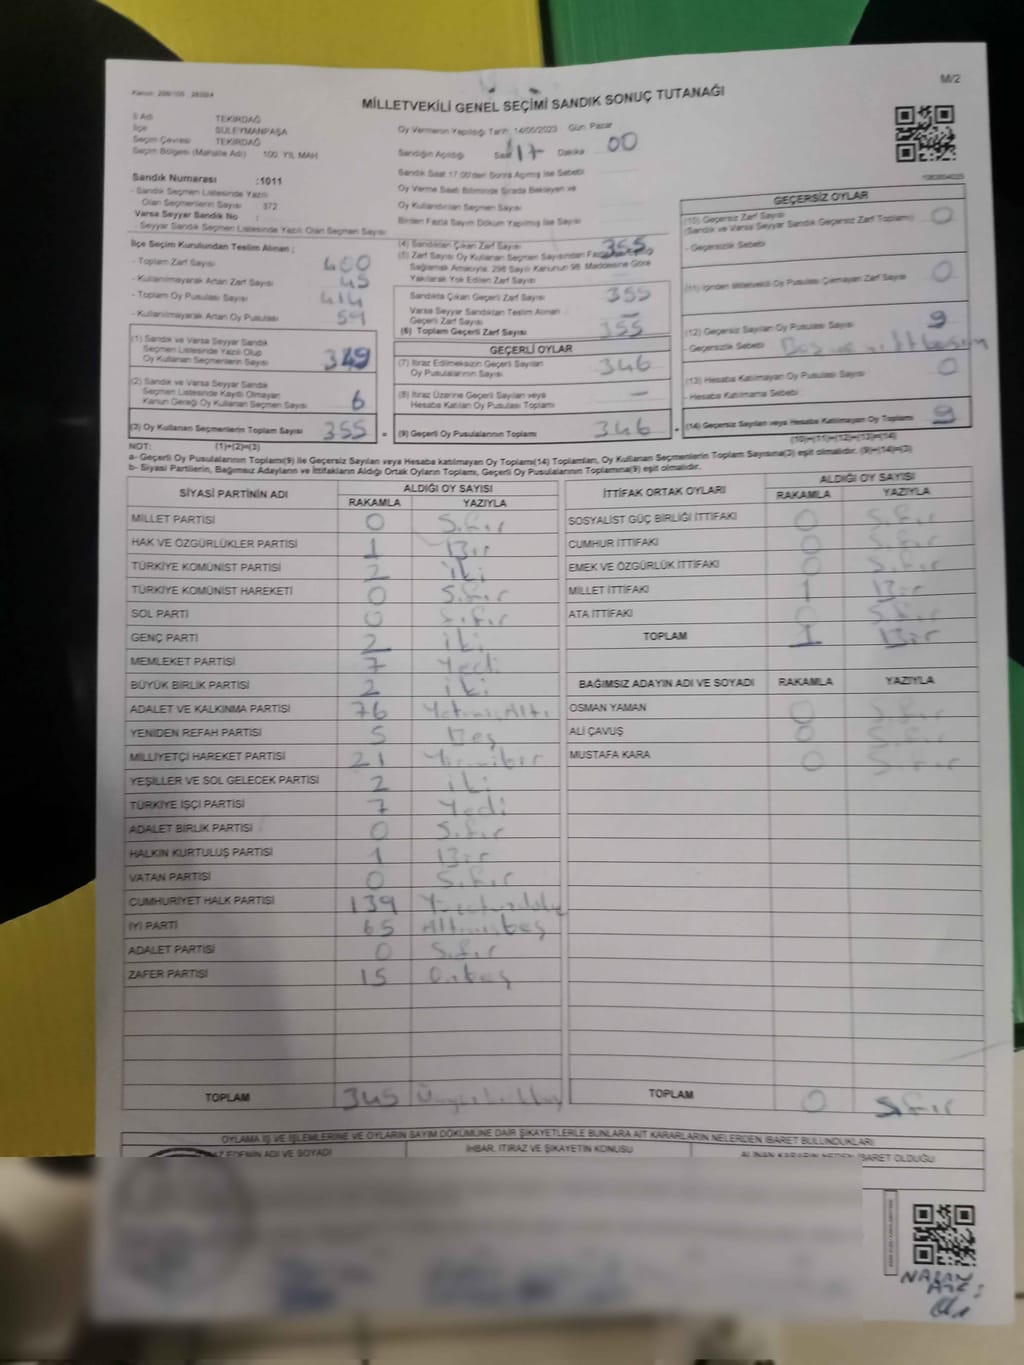 M/2
MİLLETVEKİLİ GENEL SEÇİMİ SANDIK SONUÇ TUTANAĞI
İl Adı TEKİRDAĞ
İlçe SÜLEYMANPAŞA
Seçim Çevresi TEKİRDAĞ
Seçim Bölgesi (Mahalle Adı) 100. YIL MAH
Sandık Numarası :1011
- Sandık Seçmen Listesinde Yazılı
Olan Seçmenlerin Sayısı : 372
Varsa Seyyar Sandık No :
- Seyyar Sandık Seçmen Listesinde Yazılı Olan Seçmen Sayısı
Oy Vermenin Yapıldığı Tarih: 14/05/2023 Gün: Pazar
Sandığın Açıldığı Saat 17 Dakika 00
Sandık Saat 17:00'den Sonra Açılmış İse Sebebi
Oy Verme Saati Bitiminde Sırada Bekleyen ve
Oy Kullandırılan Seçmen Sayısı
Birden Fazla Sayım Döküm Yapılmış İse Sayısı
İlçe Seçim Kurulundan Teslim Alınan ;
- Toplam Zarf Sayısı 400
- Kullanılmayarak Artan Zarf Sayısı 45
- Toplam Oy Pusulası Sayısı 414
- Kullanılmayarak Artan Oy Pusulası 59
(1) Sandık ve Varsa Seyyar Sandık
Seçmen Listesinde Yazılı Olup
Oy Kullanan Seçmenlerin Sayısı 349
(2) Sandık ve Varsa Seyyar Sandık
Seçmen Listesinde Kayıtlı Olmayan
Kanun Gereği Oy Kullanan Seçmen Sayısı 6
(3) Oy Kullanan Seçmenlerin Toplam Sayısı 355
(4) Sandıktan Çıkan Zarf Sayısı 355
(5) Zarf Sayısı Oy Kullanan Seçmen Sayısından
Sağlamak Amacıyla, 298 Sayılı Kanunun 98. Maddesine Göre
Yakılarak Yok Edilen Zarf Sayısı
Sandıkta Çıkan Geçerli Zarf Sayısı 355
Varsa Seyyar Sandıktan Teslim Alınan
Geçerli Zarf Sayısı —
(6) Toplam Geçerli Zarf Sayısı 355
GEÇERLİ OYLAR
(7) İtiraz Edilmeksizin Geçerli Sayılan
Oy Pusulalarının Sayısı 346
(8) İtiraz Üzerine Geçerli Sayılan veya
Hesaba Katılan Oy Pusulası Toplamı —
= (9) Geçerli Oy Pusulalarının Toplamı 346
GEÇERSİZ OYLAR
(10) Geçersiz Zarf Sayısı
(Sandık ve Varsa Seyyar Sandık Geçersiz Zarf Toplamı) 0
- Geçersizlik Sebebi
(11) İçinden Milletvekili Oy Pusulası Çıkmayan Zarf Sayısı 0
(12) Geçersiz Sayılan Oy Pusulası Sayısı 9
- Geçersizlik Sebebi
(13) Hesaba Katılmayan Oy Pusulası Sayısı 0
- Hesaba Katılmama Sebebi
+ (14) Geçersiz Sayılan veya Hesaba Katılmayan Oy Toplamı 9
NOT: (1)+(2)=(3) (10)+(11)+(12)+(13)=(14)
a- Geçerli Oy Pusulalarının Toplamı(9) ile Geçersiz Sayılan veya Hesaba katılmayan Oy Toplamı(14) Toplamları, Oy Kullanan Seçmenlerin Toplam Sayısına(3) eşit olmalıdır. (9)+(14)=(3)
b- Siyasi Partilerin, Bağımsız Adayların ve İttifakların Aldığı Oyların Toplamı, Geçerli Oy Pusulalarının Toplamına(9) eşit olmalıdır.
SİYASİ PARTİNİN ADI ALDIĞI OY SAYISI
RAKAMLA YAZIYLA
MİLLET PARTİSİ 0 Sıfır
HAK VE ÖZGÜRLÜKLER PARTİSİ 1 Bir
TÜRKİYE KOMÜNİST PARTİSİ 2 iki
TÜRKİYE KOMÜNİST HAREKETİ 0 Sıfır
SOL PARTİ 0 Sıfır
GENÇ PARTİ 2 iki
MEMLEKET PARTİSİ 7 Yedi
BÜYÜK BİRLİK PARTİSİ 2 iki
ADALET VE KALKINMA PARTİSİ 76 YetmişAltı
YENİDEN REFAH PARTİSİ 5 Beş
MİLLİYETÇİ HAREKET PARTİSİ 21 Yirmibir
YEŞİLLER VE SOL GELECEK PARTİSİ 2 iki
TÜRKİYE İŞÇİ PARTİSİ 7 Yedi
ADALET BİRLİK PARTİSİ 0 Sıfır
HALKIN KURTULUŞ PARTİSİ 1 Bir
VATAN PARTİSİ 0 Sıfır
CUMHURİYET HALK PARTİSİ 139
İYİ PARTİ 65 Altmışbeş
ADALET PARTİSİ 0 Sıfır
ZAFER PARTİSİ 15 Onbeş
TOPLAM 345
İTTİFAK ORTAK OYLARI ALDIĞI OY SAYISI
RAKAMLA YAZIYLA
SOSYALİST GÜÇ BİRLİĞİ İTTİFAKI 0 Sıfır
CUMHUR İTTİFAKI 0 Sıfır
EMEK VE ÖZGÜRLÜK İTTİFAKI 0 Sıfır
MİLLET İTTİFAKI 1 Bir
ATA İTTİFAKI 0 Sıfır
TOPLAM 1 Bir
BAĞIMSIZ ADAYIN ADI VE SOYADI RAKAMLA YAZIYLA
OSMAN YAMAN 0 Sıfır
ALİ ÇAVUŞ 0 Sıfır
MUSTAFA KARA 0 Sıfır
TOPLAM 0 Sıfır
OYLAMA İŞ VE İŞLEMLERİNE VE OYLARIN SAYIM DÖKÜMÜNE DAİR ŞİKAYETLERLE BUNLARA AİT KARARLARIN NELERDEN İBARET BULUNDUKLARI
EDENİN ADI VE SOYADI İHBAR, İTİRAZ VE ŞİKAYETİN KONUSU ALINAN KARARIN NEDEN İBARET OLDUĞU